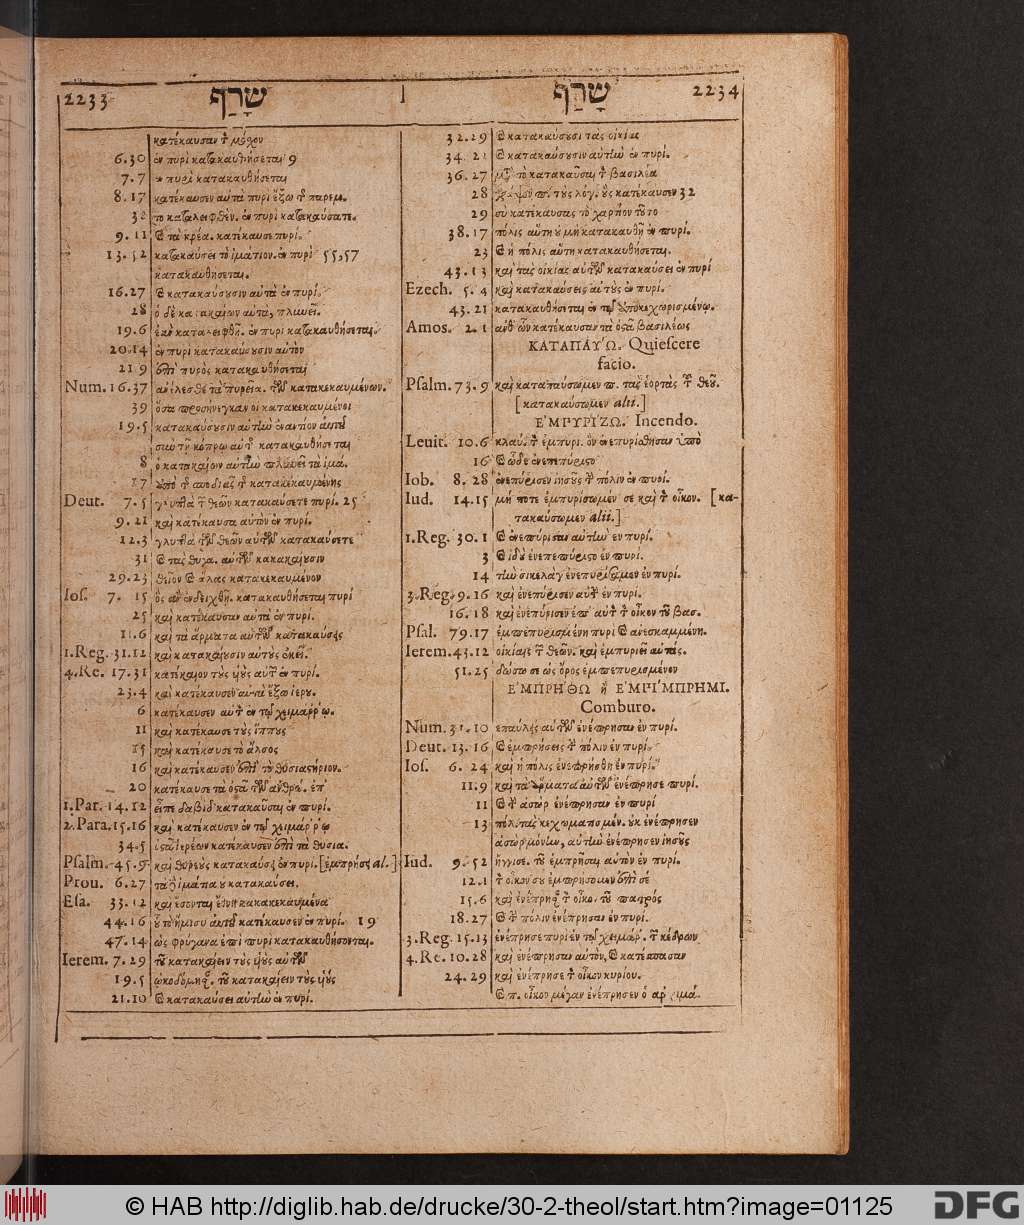 2233 שָׂרַף
κατέκαυσαν τ μόχον
6.30 ἐν πυρὶ κατακαυθήσεται 9
7.7 πυρὶ κατακαυθήσεται
8.17 κατέκαυσεν αὐτὰ πυρὶ ἔξω τ παρεμ.
32 το καταλειφθὲν. ἐν πυρὶ κατακαύσατε.
9.11 ϗ τὰ κρέα. κατέκαυσε πυρί.
13.52 κατακαύσει τὸ ἱμάτιον. ἐν πυρὶ 55,57
κατακαυθήσεται.
16.27 ϗ κατακαύσουσιν αὐτὰ ἐν πυρί.
28 ὁ δὲ κατακαίων αυτὰ, πλυνεῖ.
19.6 ἐὰν καταλειφθῇ. ἐν πυρὶ κατακαυθήσεται.
20.14 ἐν πυρὶ κατακαύσουσιν αὐτὸν
21 9 ἐπὶ πυρὸς κατακαυθήσεται
Num. 16.37 ἀνέλεσθε τὰ πυρεῖα. τῶν κατακεκαυμένων.
39 ὅσα προσήνεγκαν οἱ κατακεκαυμένοι
19.5 κατακαύσουσιν αυτὴν ἐναντίον αυτοῦ
σιω τῇ κόπρω αυτ κατακαυθήσεται
8 ὁ κατακαίων αυτὴν πλυνεῖ τὰ ἱμά.
17 ἀπὸ τ σποδιᾶς τ κατακεκαυμένης
Deut. 7.5 γλυπτὰ τ θεῶν κατακαύσετε πυρί. 25
9.21 καὶ κατέκαυσα αυτὸν ἐν πυρί.
12.3 γλυπτὰ τῶν θεῶν αυτῶν κατακαύσετε
31 ϗ τὰς θυγα. αυτῶν κατακαίουσιν
29.23 θεῖον ϗ ἅλας κατακεκαυμένον
Ios. 7. 15 ὃς ἂν ἐνδειχθῇ. κατακαυθήσεται πυρὶ
25 καὶ κατέκαυσαν αυτὰ ἐν πυρί.
11.6 καὶ τὰ ἅρματα αυτῶν κατακαύσεις
1.Reg. 31.12 καὶ κατακαίουσιν αυτοὺς ἐκεῖ.
4.Re. 17.31 κατέκαιον τοὺς υἱοὺς αυτῶν ἐν πυρί.
23.4 καὶ κατέκαυσεν αυτὰ ἔξω ἱερου.
6 κατέκαυσεν αυτ ἐν τῷ χειμάῤῥῳ.
11 καὶ κατέκαυσε τοὺς ἵππους
15 καὶ κατέκαυσε τὸ ἄλσος
16 καὶ κατέκαυσεν ἐπὶ τὸ θυσιαστήριον.
20 κατέκαυσε τὰ ὀστᾶ τῶν ἀνθρώ. ἐπ᾽
1.Par. 14.12 εἶπε δαβὶδ κατακαῦσαι ἐν πυρί.
2.Para. 15.16 καὶ κατέκαυσεν ἐν τῷ χειμάῤῥῳ
34.5 ὀστᾶ ἱερέων κατέκαυσεν ἐπὶ τὰ θυσια.
Psalm. 45.9 καὶ θυρεοὺς κατακαύσει ἐν πυρί. [ἐμπρήσει al.]
Prou. 6.27 τὰ ἱμάτια ου κατακαύσει.
Esa. 33.12 καὶ ἔσονται ἔθνη κατακεκαυμένα
44.16 οὗ τὸ ἥμισυ αυτοῦ κατέκαυσεν ἐν πυρί. 19
47.14 ὡς φρύγανα ἐπὶ πυρὶ κατακαυθήσονται.
Ierem. 7.29 τοῦ κατακαίειν τοὺς υἱοὺς αυτῶν
19.5 ᾠκοδόμησ. τοῦ κατακαίειν τοὺς υἱοὺς
21.10 ϗ κατακαύσει αυτὴν ἐν πυρί.
שָׂרַף 2234
32.29 ϗ κατακαύσουσι τὰς οἰκίας
34. 22 ϗ κατακαύσουσιν αυτὴν ἐν πυρί.
36.27 μετ τὸ κατακαῦσαι τ βασιλέα
28 γράψον π. τοὺς λόγ. οὓς κατέκαυσεν 32
29 συ κατέκαυσας τὸ χαρτίον τοῦτο
38.17 πόλις αὕτη ου μὴ κατακαυθῇ ἐν πυρί.
23 ϗ ἡ πόλις αὕτη κατακαυθήσεται.
43.13 καὶ τὰς οἰκίας αυτῶν κατακαύσει ἐν πυρί
Ezech. 5.4 καὶ κατακαύσεις αυτοὺς ἐν πυρί.
43.21 κατακαυθήσεται ἐν τῷ ἀποκεχωρισμένῳ.
Amos. 2.1 ἀνθ᾽ ὧν κατέκαυσαν τὰ ὀστᾶ βασιλέως
ΚΑΤΑΠΑΎΩ. Quiescere
facio.
Psalm. 73.9 καὶ καταπαύσωμεν π. τὰς ἑορτὰς τ θεοῦ.
[κατακαύσωμεν alii.]
ἘΜΠΥΡΊΖΩ. Incendo.
Leuit. 10.6 κλαύ. τ ἐμπυρι. ὃν ἐνεπυρίσθησαν ὑπὸ
16 ϗ ὧδε ἐνεπεπύριστο
Iob. 8.28 ἐνεπύρισεν ἰησοῦς τ πόλιν ἐν πυρί.
Iud. 14.15 μή ποτε ἐμπυρίσωμέν σε καὶ τ οἶκον. [κα-
τακαύσωμεν alii.]
1.Reg. 30.1 ϗ ἐνεπύρισαν αυτὴν ἐν πυρί.
3 ϗ ἰδοὺ ἐνεπεπύριστο ἐν πυρί.
14 τὴν σικελὰγ ἐνεπυρίσαμεν ἐν πυρί.
3.Reg. 9.16 καὶ ἐνεπύρισεν αυτ ἐν πυρί.
16.18 καὶ ἐνεπύρισεν ἐπ᾽ αυτ τ οἶκον τοῦ βασ.
Psal. 79.17 ἐμπεπυρισμένη πυρὶ ϗ ἀνεσκαμμένη.
Ierem. 43.12 οἰκίαις τ θεῶν. καὶ ἐμπυριεῖ αυτὰς.
51.25 δώσω σε ὡς ὄρος ἐμπεπυρισμένον
ἘΜΠΡΉΘΩ ἢ ἘΜΠΊΜΠΡΗΜΙ.
Comburo.
Num. 31.10 ἐπαύλεις αυτῶν ἐνέπρησαν ἐν πυρί.
Deut. 13.16 ϗ ἐμπρήσεις τ πόλιν ἐν πυρί.
Ios. 6.24 καὶ ἡ πόλις ἐνεπρήσθη ἐν πυρί.
11.9 καὶ τὰ ἅρματα αυτῶν ἐνέπρησε πυρί.
11 ϗ τ ἀσὼρ ἐνέπρησαν ἐν πυρί
13 πόλ. τὰς κεχωματισμέν. οὐκ ἐνέπρησεν
ἀσὼρ μόνην, αυτὴν ἐνέπρησεν ἰησοῦς
Iud. 9.52 ἤγγισε. τοῦ ἐμπρῆσαι αυτὸν ἐν πυρί.
12.1 τ οἶκόν σου ἐμπρήσομεν ἐπὶ σὲ
15.6 καὶ ἐνέπρησ τ οἶκο. τοῦ πατρός
18.27 ϗ τ πόλιν ἐνέπρησαν ἐν πυρί.
3.Reg. 15.13 ἐνέπρησε πυρὶ ἐν τῷ χειμάρ. τ κέδρων
4.Re. 10.28 καὶ ἐνέπρησαν αυτὸν, ϗ κατέσπασαν
24.29 καὶ ἐνέπρησε τ οἶκον κυρίου.
ϗ π. οἶκον μέγαν ἐνέπρησεν ὁ
© HAB http://diglib.hab.de/drucke/30-2-theol/start.htm?image=01125
DFG